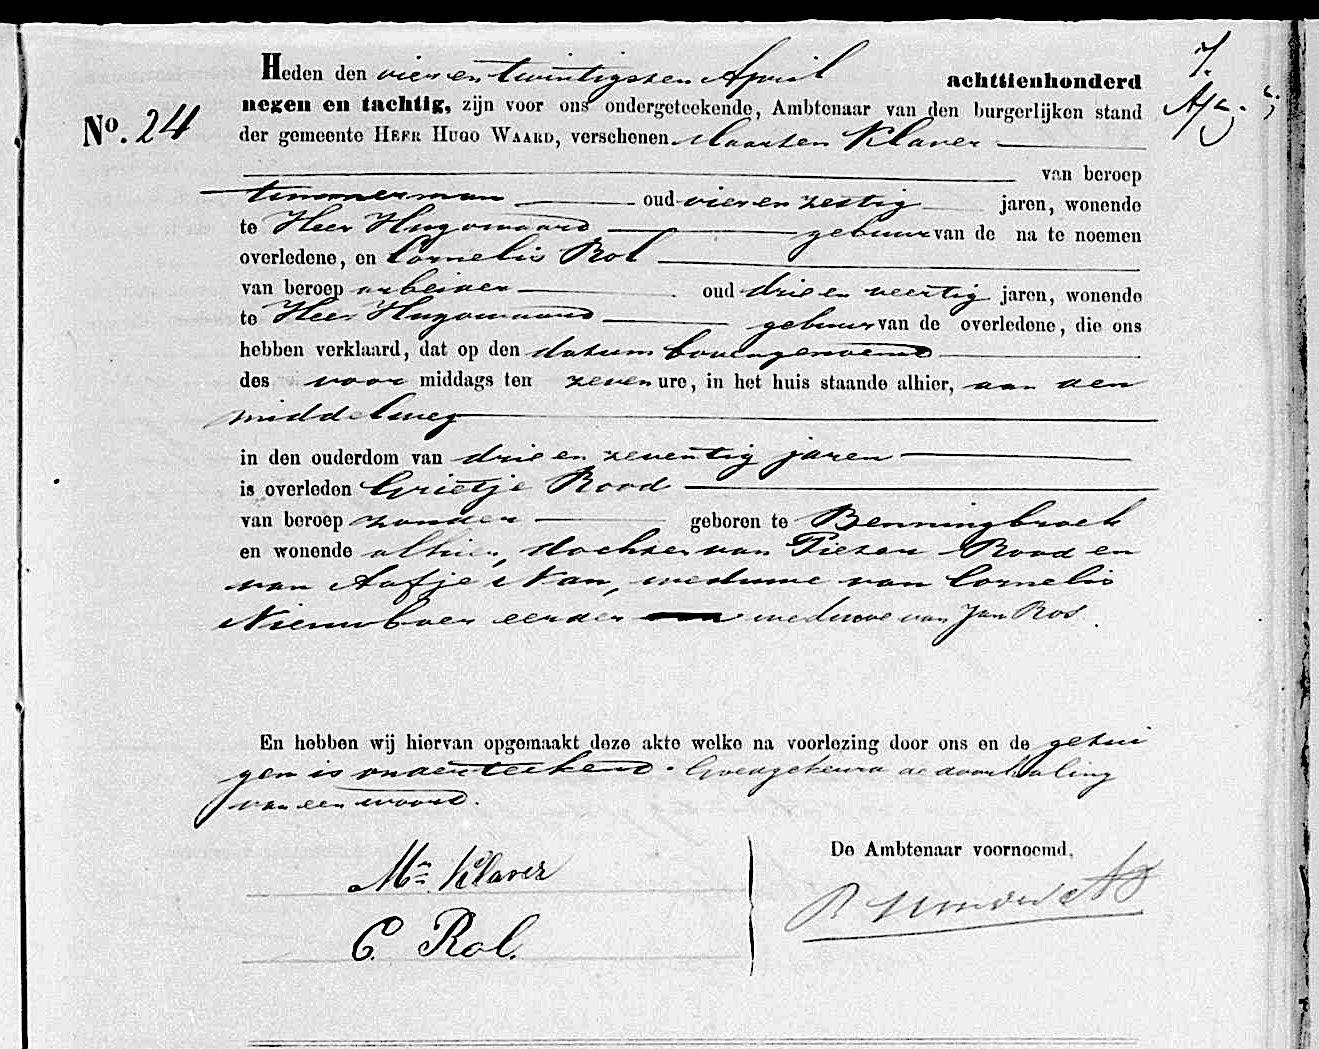 Heden den vier en twintigsten April achttienhonderd
negen en tachtig, zijn voor ons ondergeteekende, Ambtenaar van den burgerlijken stand
No. 24
der gemeente HEER HUGO WAARD, verschenen Maarten Klaver
van beroep
timmerman oud vier en zestig jaren, wonende
te Heer Hugowaard gebuur van de na te noemen
overledene, en Cornelis Rol
van beroep arbeider oud drie en veertig jaren, wonende
te Heer Hugowaard gebuur van de overledene, die ons
hebben verklaard, dat op den datum bovengenoemd
des voor middags ten zeven ure, in het huis staande alhier, aan den
middelweg
in den ouderdom van drie en zeventig jaren
is overleden Grietje Rood
van beroep zonder geboren te Benningbroek
en wonende alhier, dochter van Pieter Rood en
van Aafje Nan, weduwe van Cornelis
Nieuwboer eerder weduwe van Jan Ros.
En hebben wij hiervan opgemaakt deze akte welke na voorlezing door ons en de getui
gen is onderteekend. Goedgekeurd de doorhaling
van een woord.
De Ambtenaar voornoemd,
Mn Klaver
C. Rol.